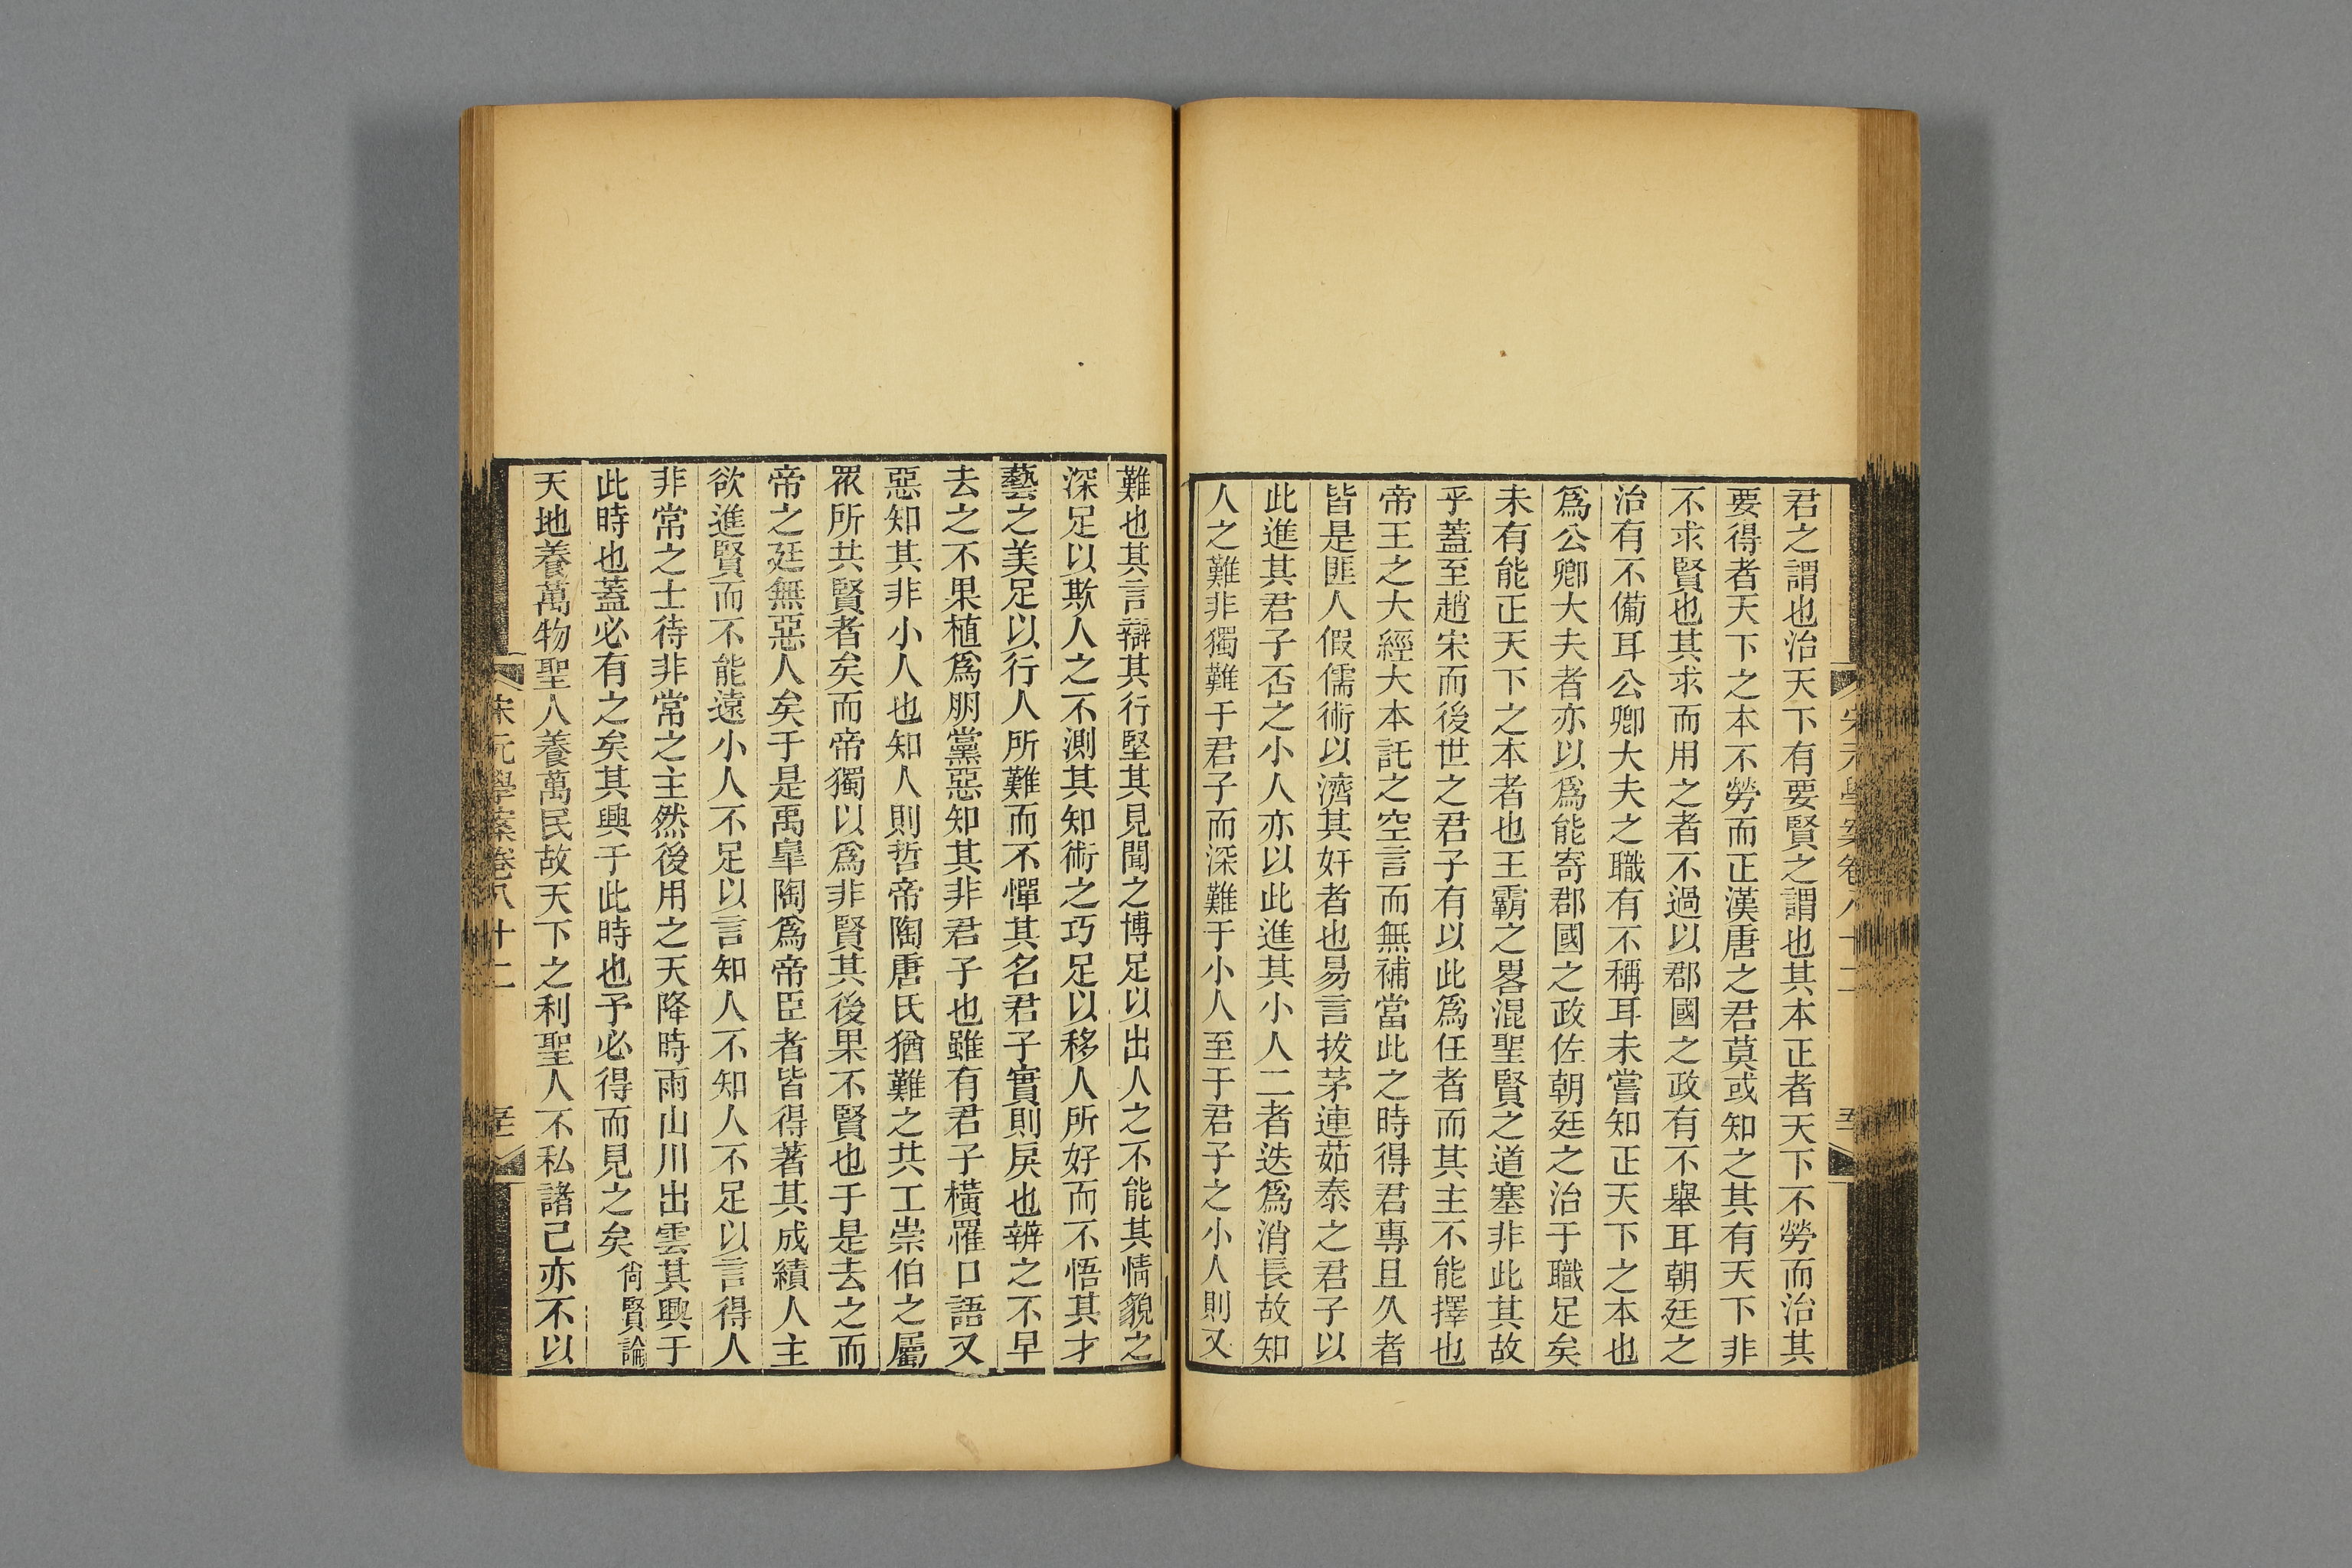 君之謂也治天下有要賢之謂也其本正者天下不勞而治其
要得者天下之本不勞而正漢唐之君莫或知之其有天下非
不求賢也其求而用之者不過以郡國之政有不舉耳朝廷之
治有不備耳公卿大夫之職有不稱耳未嘗知正天下之本也
爲公卿大夫者亦以爲能寄郡國之政佐朝廷之治于職足矣
未有能正天下之本者也王霸之畧混聖賢之道塞非此其故
乎蓋至趙宋而後世之君子有以此爲任者而其主不能擇也
帝王之大經大本託之空言而無補當此之時得君專且久者
皆是匪人假儒術以濟其奸者也易言拔茅連茹泰之君子以
此進其君子否之小人亦以此進其小人二者迭爲消長故知
人之難非獨難于君子而深難于小人至于君子之小人則又
難也其言辯其行堅其見聞之博足以出人之不能其情貌之
深足以欺人之不測其知術之巧足以移人所好而不悟其才
藝之美足以行人所難而不憚其名君子實則戾也辨之不早
去之不果植爲朋黨惡知其非君子也雖有君子橫罹口語又
惡知其非小人也知人則哲帝陶唐氏猶難之共工崇伯之屬
眾所共賢者矣而帝獨以爲非賢其後果不賢也于是去之而
帝之廷無惡人矣于是禹皐陶爲帝臣者皆得著其成績人主
欲進賢而不能遠小人不足以言知人不知人不足以言得人
非常之士待非常之主然後用之天降時雨山川出雲其興于
此時也蓋必有之矣其興于此時也予必得而見之矣尙賢論
天地養萬物聖人養萬民故天下之利聖人不私諸己亦不以
宋元學案卷八十二